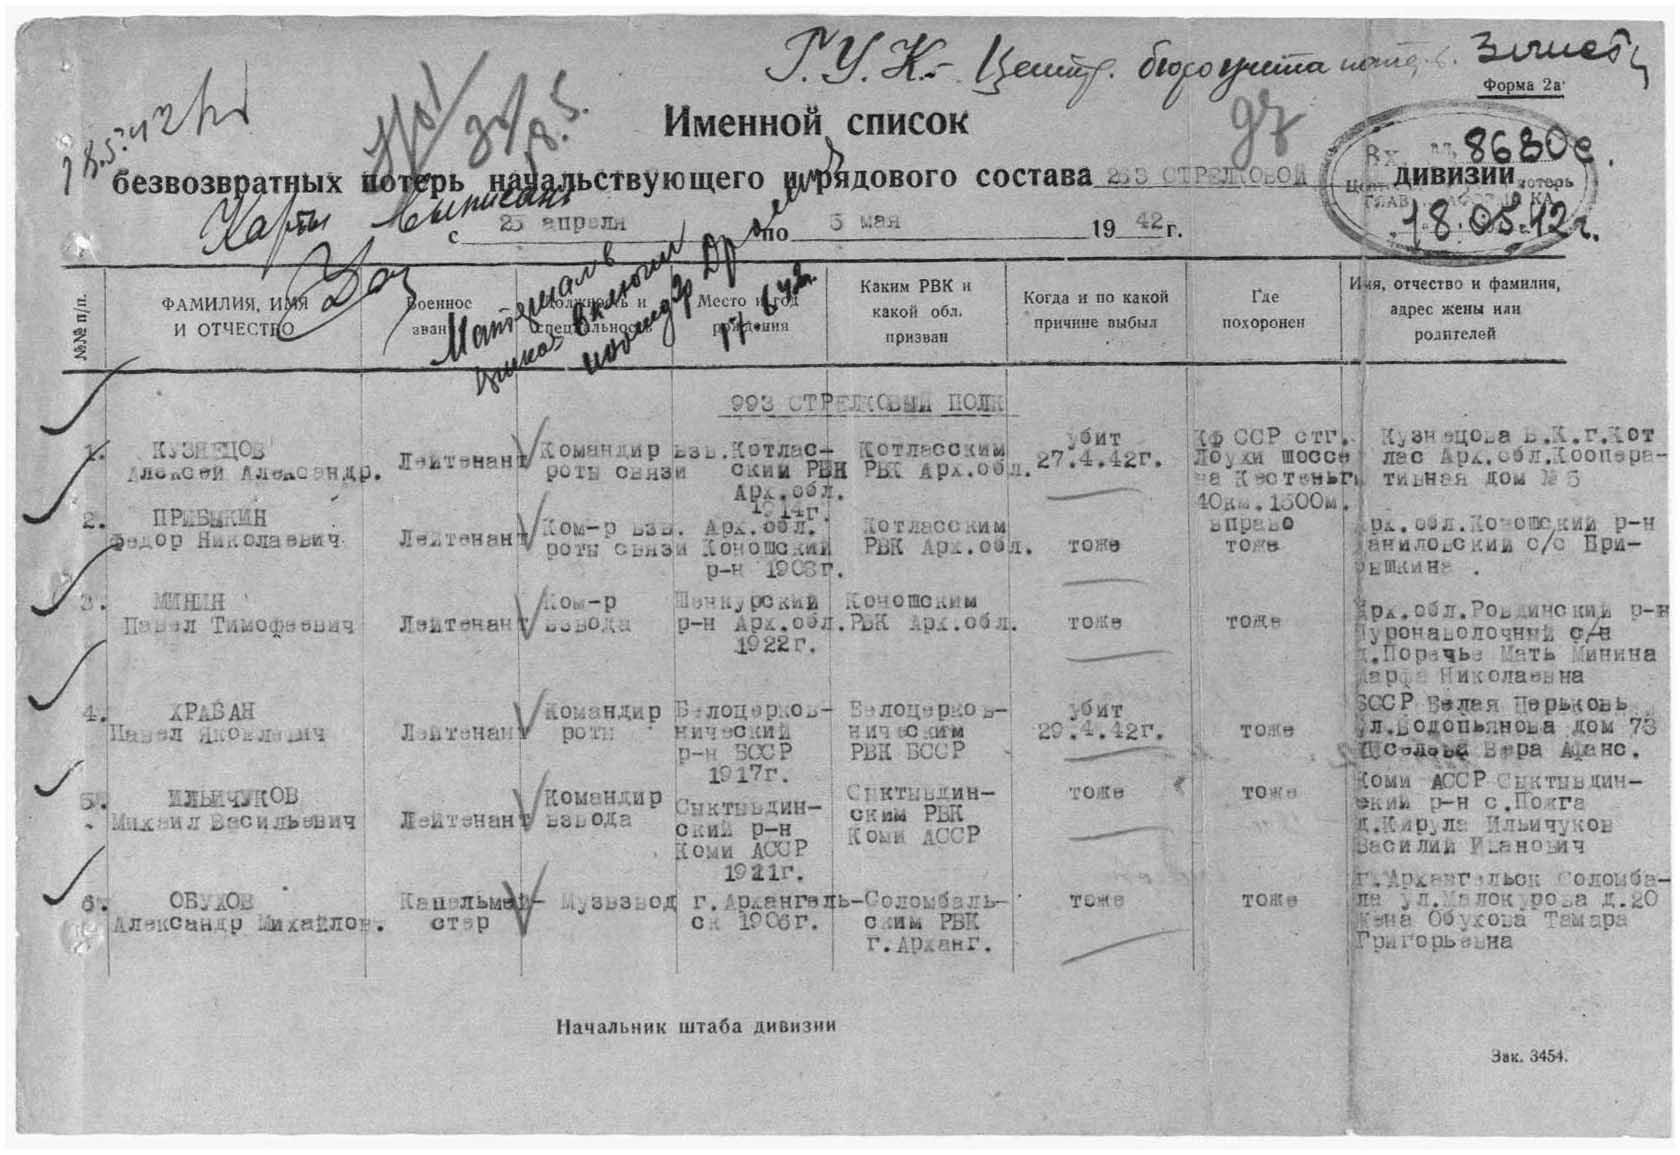 Г.У.К.- Центр. бюро учета
Форма 2а
97
Именной список
безвозвратных потерь начальствующего и рядового состава 263 СТРЕЛКОВОЙ дивизии
Вх. № 8630с.
18.05.42г.
Карты выписаны
с 25 апреля по 5 мая 1942 г.
№№ п/п.
ФАМИЛИЯ, ИМЯ
И ОТЧЕСТВО
Военное
зван
Должность и
специальность
Место и год
рождения
Каким РВК и
какой обл.
призван
Когда и по какой
причине выбыл
Где
похоронен
Имя, отчество и фамилия,
адрес жены или
родителей
993 СТРЕЛКОВЫЙ ПОЛК
1.
КУЗНЕЦОВ
Алексей Александр.
Лейтенант
Командир взв.
роты связи
Котлас-
ский РВК
Арх.обл.
1914г.
Котласским
РВК Арх.обл.
убит
27.4.42г.
КФ ССР стг.
Лоухи шоссе
на Кестеньг
40км. 1500м.
вправо
Кузнецова В.К.г.Кот
лас Арх.обл.Коопера-
тивная дом № 5
2.
ПРИБЫКИН
Федор Николаевич
Лейтенант
Ком-р взв.
роты связи
Арх.обл.
Коношский
р-н 1908г.
Котласским
РВК Арх.обл.
тоже
тоже
Арх.обл.Коношский р-н
Даниловский с/с При-
3.
МИНИН
Павел Тимофеевич
Лейтенант
Ком-р
взвода
Шенкурский
р-н Арх.обл.
1922г.
Коношским
РВК Арх.обл.
тоже
тоже
Арх.обл.Ровдинский р-н
Пуронаволочный с/с
д.Поречье Мать Минина
Марфа Николаевна
4.
ХРАБАН
Павел Яковлевич
Лейтенант
Командир
роты
Белоцерков-
нический
р-н БССР
1917г.
Белоцерков-
ническим
РВК БССР
убит
29.4.42г.
тоже
БССР Белая Церьковь
ул.Водопьянова дом 73
Киселева Вера Афанс.
5.
ИЛЬИЧУКОВ
Михаил Васильевич
Лейтенант
Командир
взвода
Сыктывдин-
ский р-н
Коми АССР
1921г.
Сыктывдин-
ским РВК
Коми АССР
тоже
тоже
Коми АССР Сыктывдин-
ский р-н с.Пожга
д.Кирула Ильичуков
Василий Иванович
6.
ОБУХОВ
Александр Михайлов.
Капельмей-
стер
Музвзвод
г.Архангель-
ск 1906г.
Соломбаль-
ским РВК
г.Арханг.
тоже
тоже
г.Архангельск Соломба-
ла ул.Малокурова д.20
Жена Обухова Тамара
Григорьевна
Начальник штаба дивизии
Зак. 3454.